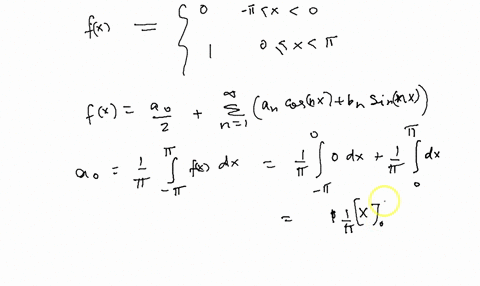 f(x) = { 0 -π < x < 0
1 0 < x < π
f(x) = a₀/2 + ∑_{n=1}^{∞} (aₙ cos(nx) + bₙ sin(nx))
a₀ = 1/π ∫_{-π}^{π} f(x) dx = 1/π ∫_{-π}^{0} 0 dx + 1/π ∫_{0}^{π} dx
= 1/π [x]₀